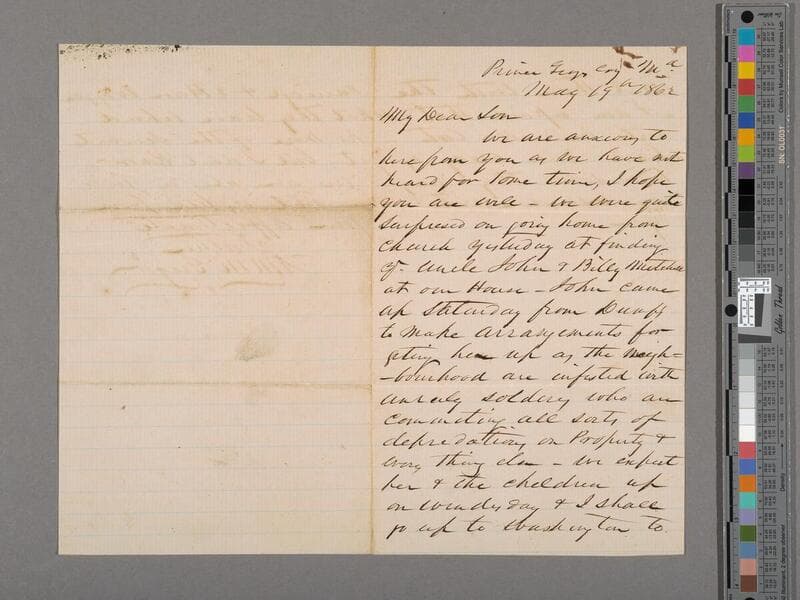 Prince Geo's Coy Ma
May 19th 1862
My Dear Son
We are anxious to
here from you as we have not
heard for some time, I hope
you are well - we were quite
surpresed on going home from
church yesterday at finding
yr Uncle John & Billy Mitchell
at our House - John came
up Saturday from
to make arrangements for
geting her up as the neigh-
-bourhood are infested with
unruly soldiers who are
commiting all sorts of
depredations on Property &
every thing else - we expect
her & the children up
on Wendesday & I shall
go up to Washington to